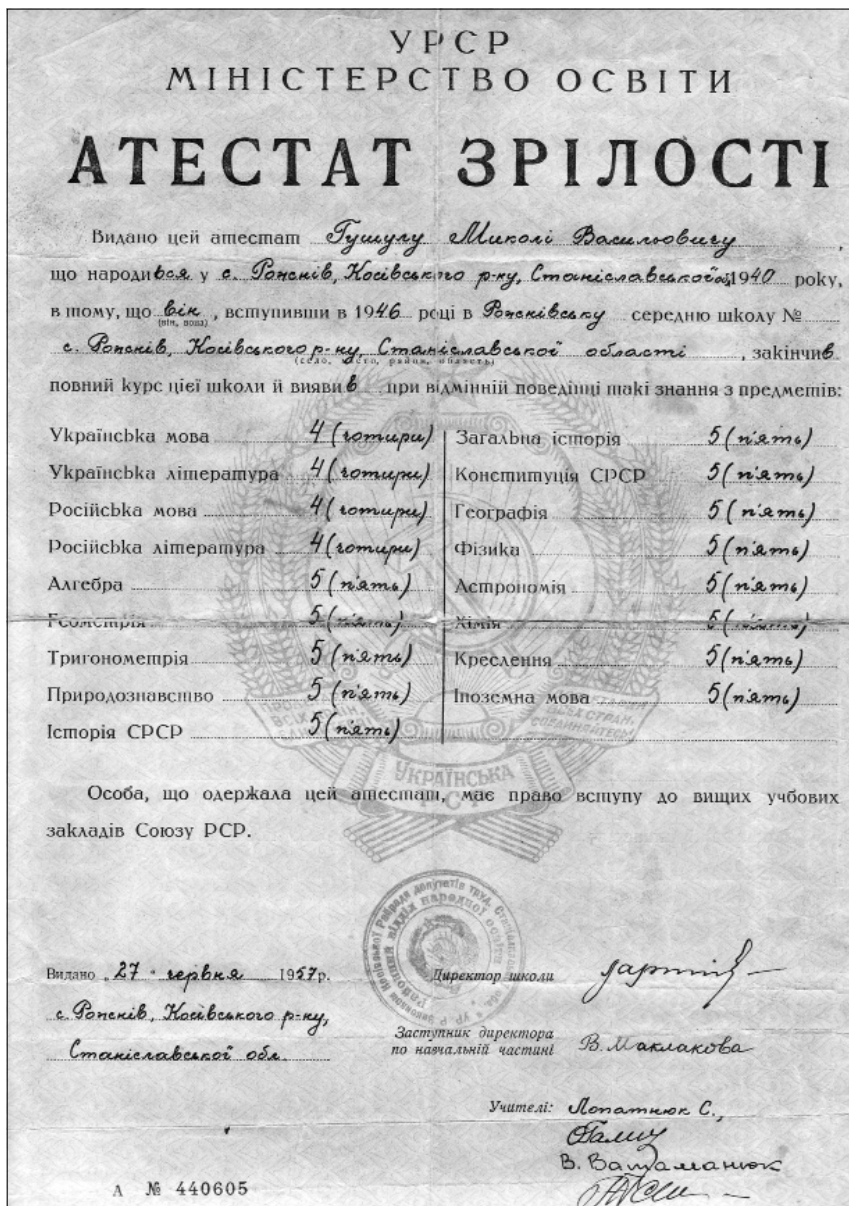 УРСР
МІНІСТЕРСТВО ОСВІТИ
АТЕСТАТ ЗРІЛОСТІ
Видано цей атестат Гушулу Миколі Васильовичу,
що народився у с. Рожнів, Косівського р-ну, Станіславської об. 1940 року,
в тому, що він, вступивши в 1946 році в Рожнівську середню школу №
(він, вона)
с. Рожнів, Косівського р-ну, Станіславської області, закінчив
(село, місто, район, область)
повний курс цієї школи й виявив при відмінній поведінці такі знання з предметів:
Українська мова 4 (чотири)
Українська література 4 (чотири)
Російська мова 4 (чотири)
Російська література 4 (чотири)
Алгебра 5 (п'ять)
Геометрія 5 (п'ять)
Тригонометрія 5 (п'ять)
Природознавство 5 (п'ять)
Історія СРСР 5 (п'ять)
Загальна історія 5 (п'ять)
Конституція СРСР 5 (п'ять)
Географія 5 (п'ять)
Фізика 5 (п'ять)
Астрономія 5 (п'ять)
Хімія 5 (п'ять)
Креслення 5 (п'ять)
Іноземна мова 5 (п'ять)
УКРАЇНСЬКА
Особа, що одержала цей атестат, має право вступу до вищих учбових
закладів Союзу РСР.
Видано „27" червня 1957 р.
с. Рожнів, Косівського р-ну,
Станіславської обл.
Директор школи
Заступник директора
по навчальній частині В. Маклакова
Учителі: Лопатнюк С.,
В. Ватаманюк
А № 440605